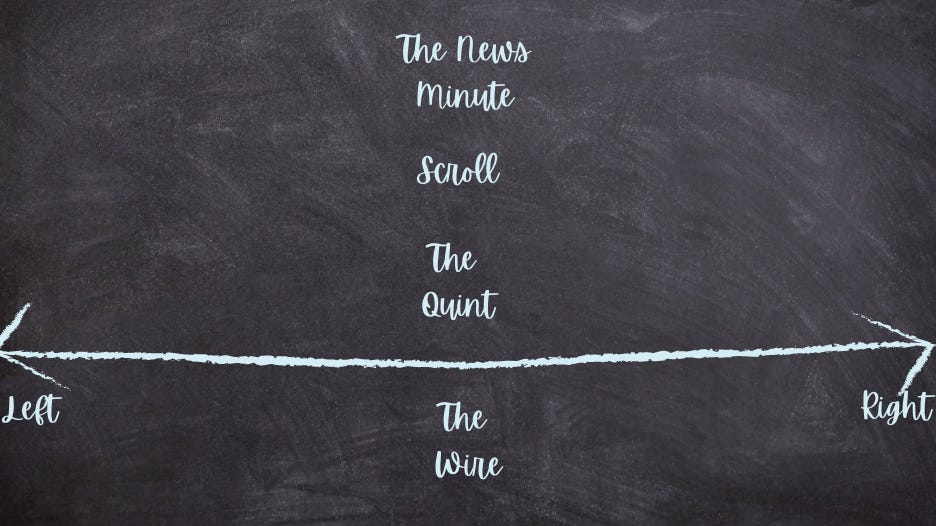 The News
Minute
Scroll
The
Quint
Left
Right
The
Wire